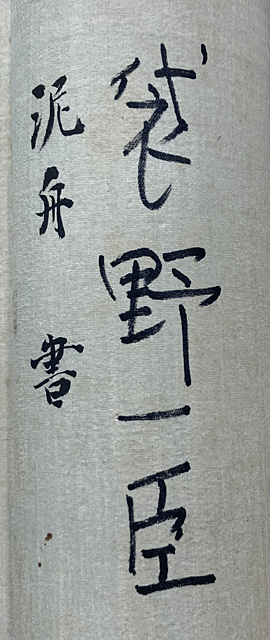 袋野一臣
泥舟 書